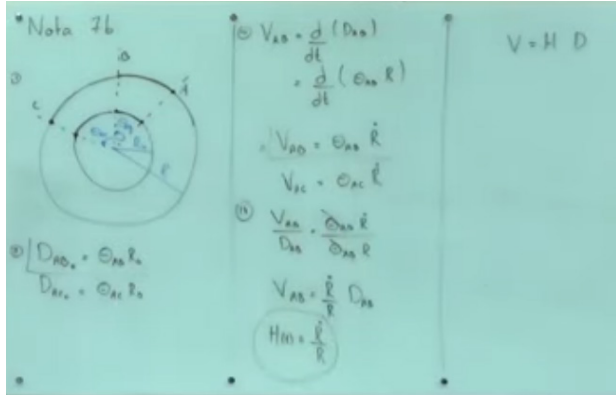 Nota 7b
B
A
C
R₀
R
D_AB₀ = Θ_AB R₀
D_AC₀ = Θ_AC R₀
V_AB = d/dt (D_AB)
= d/dt (Θ_AB R)
V_AB = Θ_AB Ṙ
V_AC = Θ_AC Ṙ
V_AB/D_AB = Θ_AB Ṙ/Θ_AB R
V_AB = Ṙ/R D_AB
H(t) = Ṙ/R
V = H D